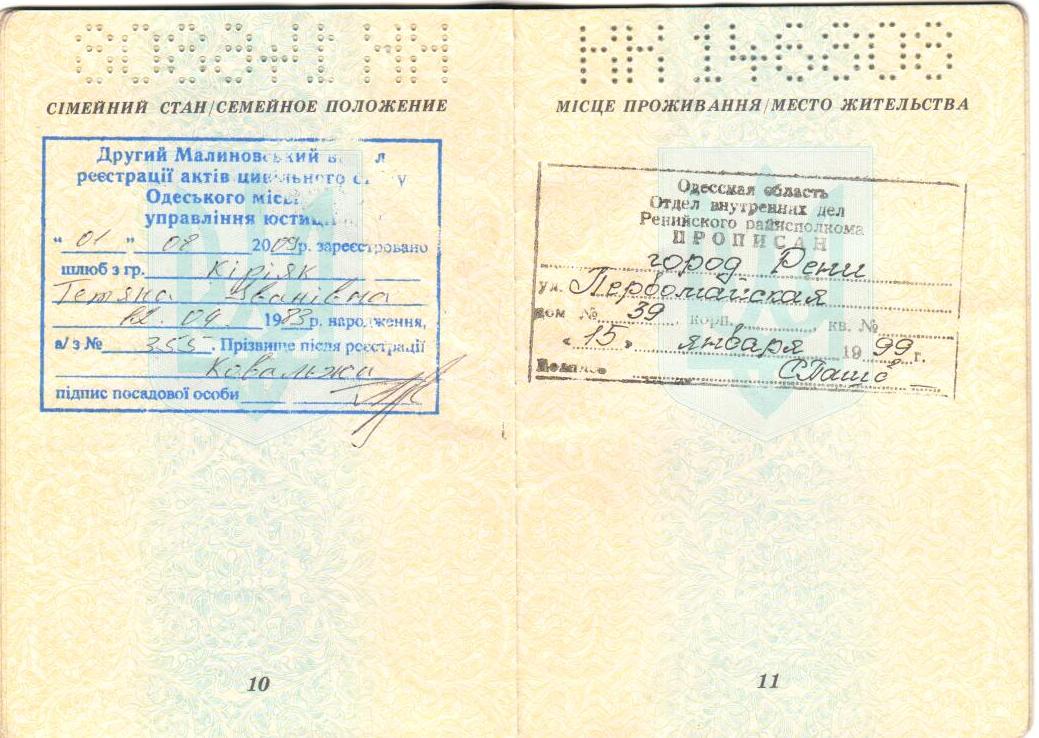 КМ 146808
СІМЕЙНИЙ СТАН/СЕМЕЙНОЕ ПОЛОЖЕНИЕ
Другий Малиновський
реєстрації актів цивільного
Одеського
управління юстиції
"01" 08 2009р. зареєстровано
шлюб з гр. Кіріяк
Тетяна Іванівна
04. 1983р. народження,
а/з № 355. Прізвище після реєстрації
підпис посадової особи
10
КМ 146808
МІСЦЕ ПРОЖИВАННЯ/МЕСТО ЖИТЕЛЬСТВА
Одесская область
Отдел внутренних дел
Ренийского райисполкома
ПРОПИСАН
город Рени
ул. Первомайская
дом № 39, корп. , кв. №
«15» января 1999г.
11